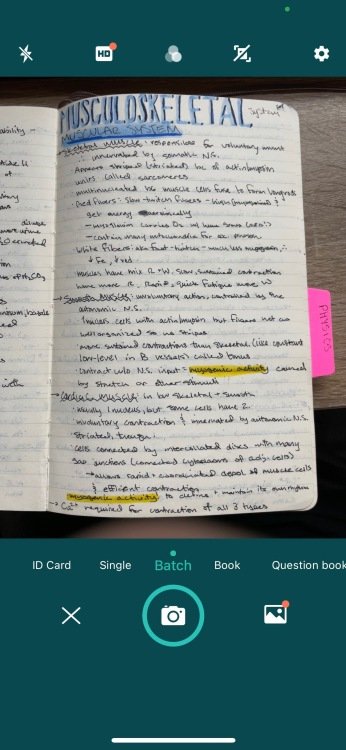 HD
MUSCULOSKELETAL
System
MUSCULAR SYSTEM
Skeletal muscle: responsible for voluntary mvmt
innervated by somatic N.S.
Appears striped (striated) bc of actin/myosin
units called sarcomeres
multinucleated bc muscle cells fuse to form long rods
Red fibers: slow-twitch fibers - high (myoglobin) &
get energy aerobically
- myoglobin carries O₂ w/ heme
- contain many mitochondria for ox. phos.
White fibers: aka fast-twitch - much less myoglobin
↓ Fe, ↓ red
muscles have mix R + W. Slow sustained contraction
have more R. Rapid, quick fatigue more W
Smooth Muscle: involuntary action, controlled by the
autonomic N.S.
1 nucleus cells with actin/myosin but fibers not as
well organized so no stripes
more sustained contractions than skeletal (like constant
low-level in B vessels) called tonus
contract w/o N.S. input = myogenic activity caused
by stretch or other stimuli
Cardiac Muscle: in btw skeletal + smooth
usually 1 nucleus, but some cells have 2.
involuntary contraction & innervated by autonomic N.S.
striated, though.
cells connected by intercalated discs with many
gap junctions (connected cytoplasms of adj. cells)
→ allows rapid + coordinated depol of muscle cells
& efficient contraction
myogenic activity to define + maintain its own rhythm
→ Ca²⁺ required for contraction of all 3 types
PHYSICS
ID Card
Single
Batch
Book
Question book